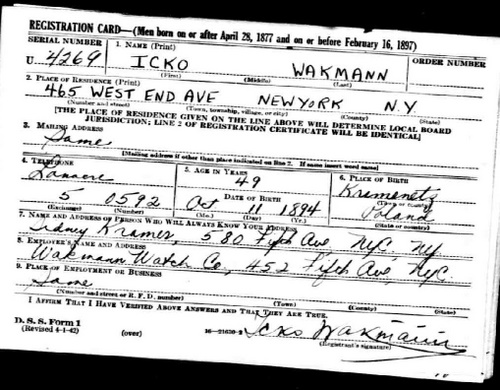 REGISTRATION CARD—(Men born on or after April 28, 1877 and on or before February 16, 1897)
SERIAL NUMBER 1. NAME (Print) ORDER NUMBER
U 4269 ICKO WAKMANN
(First) (Middle) (Last)
2. PLACE OF RESIDENCE (Print)
465 WEST END AVE NEW YORK N.Y.
(Number and street) (Town, township, village, or city) (County) (State)
[THE PLACE OF RESIDENCE GIVEN ON THE LINE ABOVE WILL DETERMINE LOCAL BOARD
JURISDICTION; LINE 2 OF REGISTRATION CERTIFICATE WILL BE IDENTICAL]
3. MAILING ADDRESS
Same
[Mailing address if other than place indicated on line 2. If same insert word same]
4. TELEPHONE 5. AGE IN YEARS 6. PLACE OF BIRTH
49 Kremenetz
DATE OF BIRTH (Town or county)
5 0592 Oct 11 1894 Poland
(Exchange) (Number) (Mo.) (Day) (Yr.) (State or country)
7. NAME AND ADDRESS OF PERSON WHO WILL ALWAYS KNOW YOUR ADDRESS
Sidney Kramer, 580 Fifth Ave, NYC. NY
8. EMPLOYER'S NAME AND ADDRESS
Wakmann Watch Co, 452 Fifth Ave, NYC.
9. PLACE OF EMPLOYMENT OR BUSINESS
Same
(Number and street or R. F. D. number) (Town) (County) (State)
I AFFIRM THAT I HAVE VERIFIED ABOVE ANSWERS AND THAT THEY ARE TRUE.
D. S. S. Form 1
(Revised 4-1-42) (over) 16—21630-2 Icko Wakmann
(Registrant's signature)